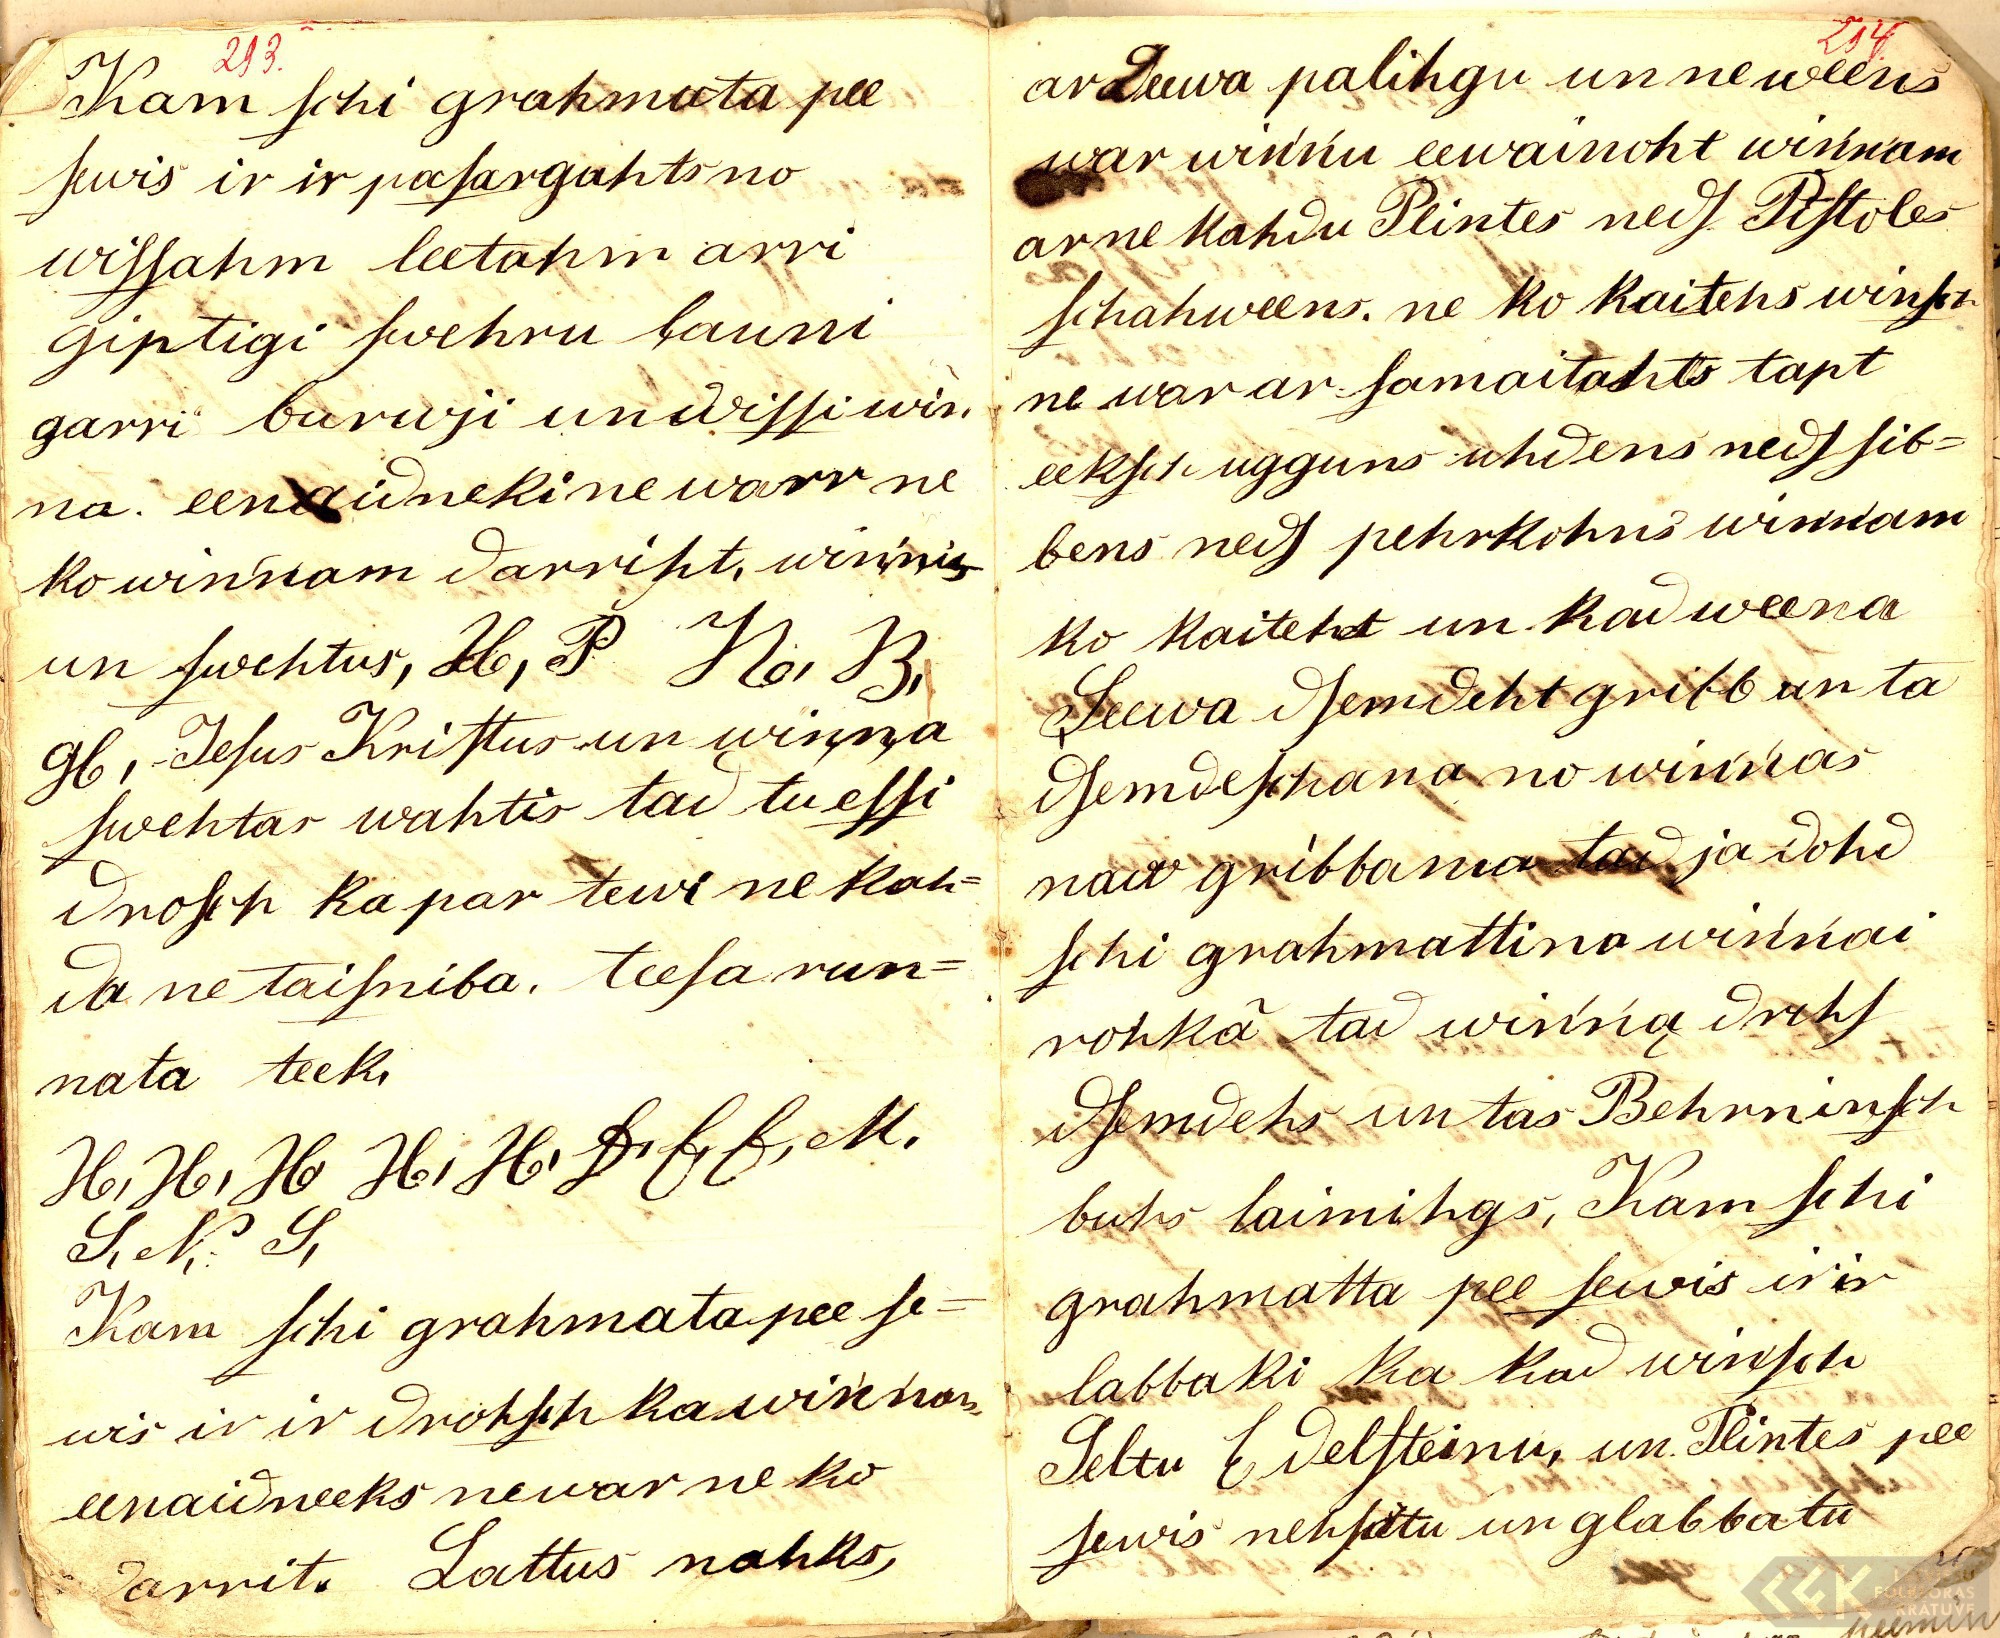 293.
Kam ſchi grahmata pee
ſewis ir ir paſargahts no
wiſſahm leetahm arri
giptigi ſwehru launi
garri burwji un wiſſi win
na. eenaidneki ne warr ne
ko winńam darriht, winńis
un ſwehtus, H, P N. B,
H, Jeſus Kriſtus un winna
ſwehtas wahtis tad tu eſſi
droſch ka par tewi ne kah=
da ne taiſniba. teeſa run=
nata teek,
H, H, H H, H, M.
S, N. S,
Kam ſchi grahmata pee ſe=
wis ir ir drohſch ka winńam
eenaidneeks ne war ne ko
darrit. Lattus nahks,
294
ar Deewa palihgu un ne weens
war winńu eewainoht winńam
ar ne kahdu Plintes nedſ Piſtoles
ſchahweens. ne ko kaitehs winſch
ne war ar ſamaitahts tapt
eekſch ugguns uhdens nedſ ſib=
bens nedſ pehrkohns winńam
ko kaiteht un kad weena
Seewa dſemdeht gribb un ta
dſemdeſchana no winńas
naw gribbama tad ja dohd
ſchi grahmattina winńai
rohkâ tad winńa drihſ
dſemdehs un tas Behrninſch
buhs laimihgs, Kam ſchi
grahmatta pee ſewis ir ir
labbaki ka kad winſch
Seltu Edelſteinu, un Plintes pee
ſewis nehſatu un glabbatu
FOLKLORAS
KRĀTUVE